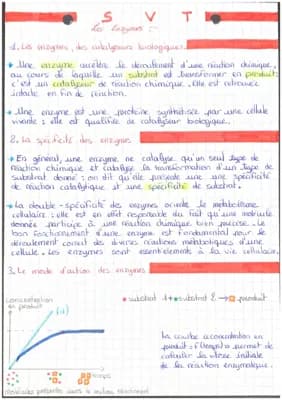 S V T
Les Enzymes :
1. Les enzymes, des catalyseurs biologiques.
→ Une enzyme accélère le déroulement d'une réaction chimique,
au cours de laquelle un substrat est transformer en produit:
c'est un catalyseur de réaction chimique. Elle est retrouvée
intacte en fin de réaction.
→ Une enzyme est une protéine synthétisée par une cellule
vivante : elle est qualifiée de catalyseur biologique.
2. La spécificité des enzymes
→ En général, une enzyme ne catalyse qu'un seul type de
réaction chimique et catalyse la transformation d'un type de
substrat donné : on dit qu'elle présente une une spécificité
de réaction catalytique et une spécificité de substrat.
→ La double-spécificité des enzymes oriente le métabolisme
cellulaire : elle est en effet responsable du fait qu'une molécule
donnée participe à une réaction chimique bien précise. Le
bon fonctionnement d'une enzyme est fondamental pour le
déroulement correct des diverses réactions métaboliques d'une
cellule. Les enzymes sont essentielles à la vie cellulaire.
3. Le mode d'action des enzymes
Concentration
en produit
substrat 1 + substrat 2 → produit
temps
molécules présentes dans le milieu réactionnel
La courbe
produit = f(temps) permet de
calculer la vitesse initiale
de la réaction enzymatique.